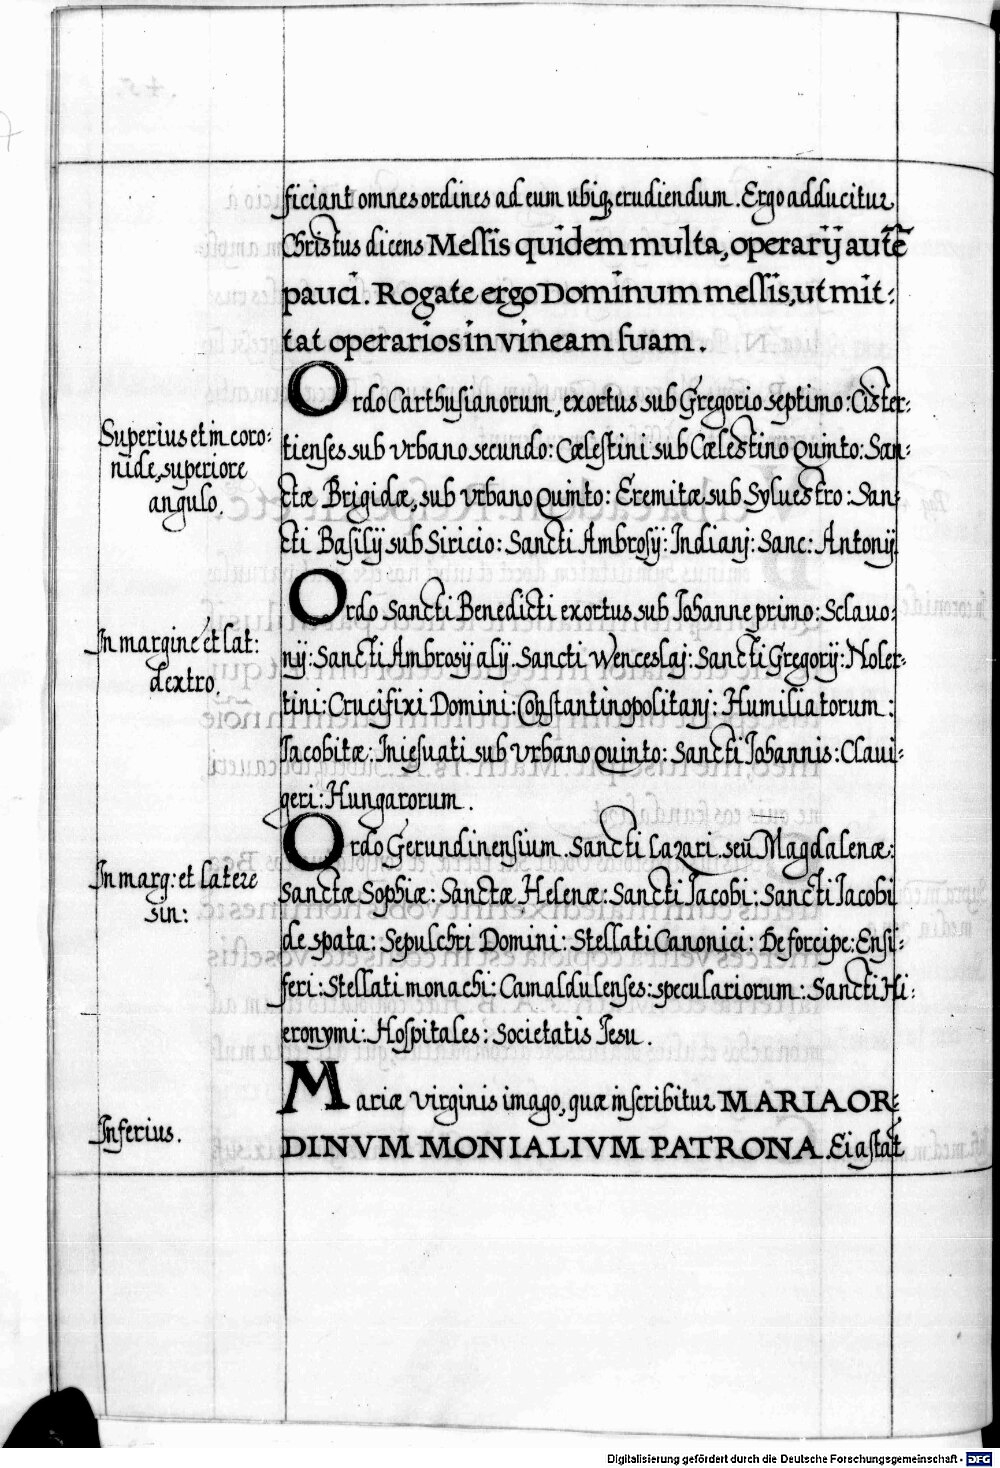 ficiant omnes ordines ad eum ubiq; erudiendum. Ergo adducitur
Christus dicens Messis quidem multa, operarij autẽ
pauci. Rogate ergo Dominum messis, ut mit-
tat operarios in vineam suam.
Superius et in coro:
nide, superiore
angulo.
Ordo Carthusianorum, exortus sub Gregorio septimo: Cister-
tienses sub Vrbano secundo: Cælestini sub Cælestino Quinto: San-
ctæ Brigidæ, sub Vrbano Quinto: Eremitæ sub Sylvestro: San-
cti Basilij sub Siricio: Sancti Ambrosij: Indianj: Sanc: Antonij
In margine et lat:
dextro.
Ordo Sancti Benedicti exortus sub Johanne primo: Sclavo-
nij: Sancti Ambrosij alij. Sancti Wenceslaj: Sancti Gregorij: Noler-
tini: Crucifixi Domini: Constantinopolitanj: Humiliatorum:
Jacobitæ: Iniesuati sub Vrbano quinto: Sancti Johannis: Clavi-
geri: Hungarorum.
In marg: et latere
sin:
Ordo Gerundinensium. Sancti Lazari. seu Magdalenæ:
Sanctæ Sophiæ: Sanctæ Helenæ: Sancti Jacobi: Sancti Jacobi
de spata: Sepulchri Domini: Stellati Canonici: De forcipe: Ensi-
feri: Stellati monachi: Camaldulenses: speculariorum: Sancti Hi-
eronymi: Hospitales: Societatis Jesu.
Inferius.
Mariæ virginis imago, quæ inscribitur MARIA OR-
DINVM MONIALIVM PATRONA. Ei astat
Digitalisierung gefördert durch die Deutsche Forschungsgemeinschaft - DFG